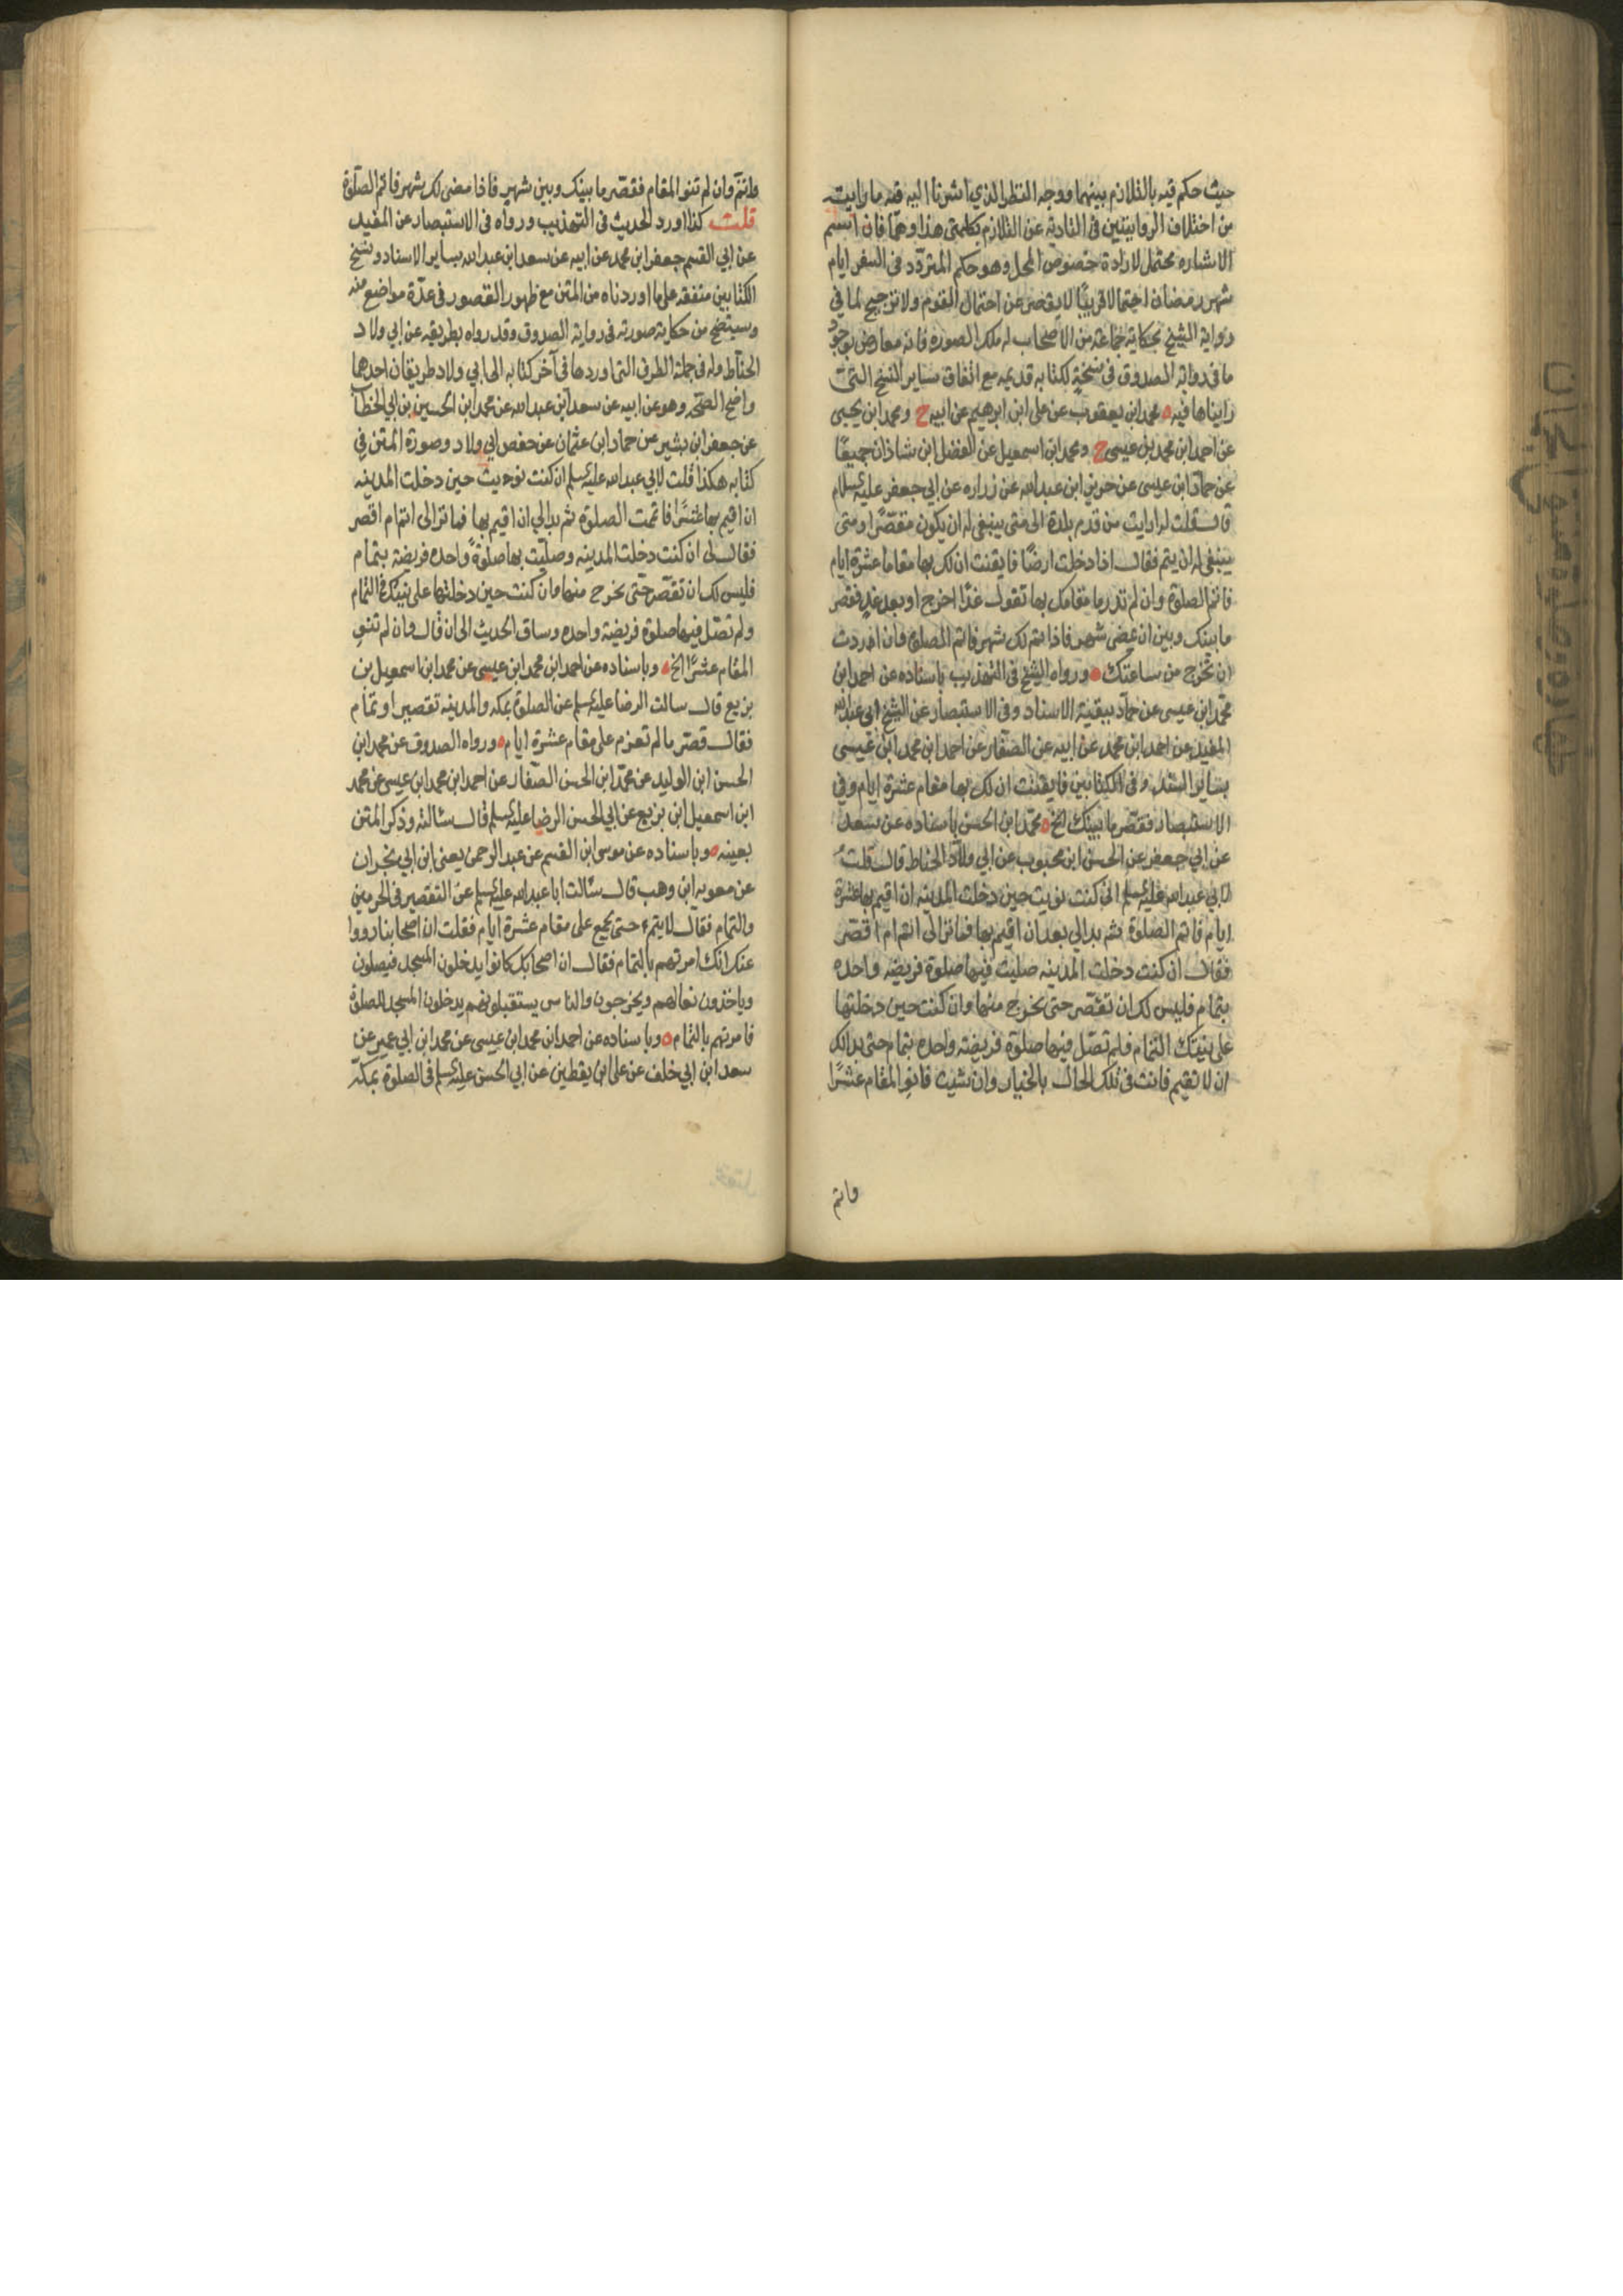 حيث حكم فيه بالتلازم بينهما ووجه النظر الذي اشرنا اليه فيه ما رايت
من اختلاف الروايتين في التادية عن التلازم بكلمتي هذا وهما فان اسم
الاشاره محتمل لارادة خصوص المحل وهو حكم المتردد في السفر ايام
شهر رمضان احتمالا قريبًا لا يقصر عن احتمال العموم ولا ترجيح لما في
رواية الشيخ بحكاية جماعة من الاصحاب له بتلك الصوره فانه معارض بوجود
ما في رواية الصدوق في نسخة لكتابه قديمه مع اتفاق ساير النسخ التي
رايناها فيه ه محمد ابن يعقوب عن على ابن ابرهيم عن ابيه ح ومحمد ابن يحيى
عن احمد ابن محمد بن عيسى ح ومحمد ابن اسمعيل عن الفضل ابن شاذان جميعًا
عن حماد ابن عيسى عن حريز ابن عبد الله عن زراره عن ابي جعفر عليه السلام
قال قلت له ارايت من قدم بلدة الى متى ينبغى له ان يكون مقصرًا ومتى
ينبغى له ان يتم فقال اذا دخلت ارضًا فايقنت ان لك بها مقاما عشرة ايام
فاتم الصلوة وان لم تدر ما مقامك بها تقول غدًا اخرج او بعد غد فقصر
ما بينك وبين ان يمضى شهر فاذا تم لك شهر فاتم الصلوة وان اردت
ان تخرج من ساعتك ه ورواه الشيخ في التهذيب باسناده عن احمد ابن
محمد ابن عيسى عن حماد ببقية الاسناد وفي الاستبصار عن الشيخ ابي عبد الله
المفيد عن احمد ابن محمد عن ابيه عن الصفار عن احمد ابن محمد ابن عيسى
بساير السند وفي الكتابين فايقنت ان لك بها مقام عشرة ايام وفي
الاستبصار فقصر ما بينك الخ ه محمد ابن الحسن باسناده عن سعد
عن ابي جعفر عن الحسن ابن محبوب عن ابي ولاد الحناط قال قلت
لابي عبد الله عليه السلم اني كنت نويت حين دخلت المدينه ان اقيم بها عشرة
ايام فاتم الصلوة ثم بدا لي بعد ان اقيم بها فما ترى لى اتم ام اقصر
فقال ان كنت دخلت المدينه صليت فيها صلوة فريضه واحده
بتمام فليس لك ان تقصر حتى تخرج منها وان كنت حين دخلتها
على نيتك التمام فلم تصل فيها صلوة فريضه واحده بتمام حتى بدا لك
ان لا تقيم فانت في تلك الحال بالخيار وان شيت فانو المقام عشرًا
واتم
واتم وان لم تنو المقام فقصر ما بينك وبين شهر فاذا مضى لك شهر فاتم الصلوة
قلت كذا اورد الحديث في التهذيب ورواه في الاستبصار عن المفيد
عن ابي القسم جعفر ابن محمد عن ابيه عن سعد ابن عبد الله بساير الاسناد ونسخ
الكتابين متفقه على ما اوردناه من المتن مع ظهور القصور في عدة مواضع منه
وسيتضح من حكاية صورته في رواية الصدوق وقد رواه بطريقه عن ابي ولاد
الحناط وله في جملة الطرق التي اوردها في آخر كتابه الى ابي ولاد طريقان احدهما
واضح الصحه وهو عن ابيه عن سعد ابن عبد الله عن محمد ابن الحسين بن ابي الخطاب
عن جعفر ابن بشير عن حماد ابن عثمان عن حفص ابي ولاد وصورة المتن في
كتابه هكذا قلت لابي عبد الله عليه السلم ان كنت نويت حين دخلت المدينه
ان اقيم بها عشرًا فاتممت الصلوة ثم بدا لي ان لا اقيم بها فما ترى لى اتم ام اقصر
فقال لى ان كنت دخلت المدينه وصليت بها صلوةً واحده فريضة بتمام
فليس لك ان تقصر حتى تخرج منها وان كنت حين دخلتها على نيتك في التمام
ولم تصل فيها صلوة فريضة واحده وساق الحديث الى ان قال وان لم تنو
المقام عشرًا الخ ه وباسناده عن احمد ابن محمد ابن عيسى عن محمد ابن اسمعيل بن
بزيع قال سالت الرضا عليه السلم عن الصلوة بمكه والمدينه تقصير او تمام
فقال قصر ما لم تعزم على مقام عشرة ايام ه ورواه الصدوق عن محمد ابن
الحسن ابن الوليد عن محمد ابن الحسن الصفار عن احمد ابن محمد ابن عيسى عن محمد
ابن اسمعيل ابن بزيع عن ابي الحسن الرضا عليه السلم قال سالته وذكر المتن
بعينه ه وباسناده عن موسى ابن القسم عن عبد الرحمن يعنى ابن ابي نجران
عن معويه ابن وهب قال سالت ابا عبد الله عليه السلم عن التقصير في الحرمين
والتمام فقال لا يتم حتى يجمع على مقام عشرة ايام فقلت ان اصحابنا رووا
عنك انك امرتهم بالتمام فقال ان اصحابك كانوا يدخلون المسجد فيصلون
وياخذون نعالهم ويخرجون والناس يستقبلونهم يدخلون المسجد للصلوة
فامرتهم بالتمام ه وباسناده عن احمد ابن محمد ابن عيسى عن محمد ابن ابي عمير عن
سعد ابن ابي خلف عن على ابن يقطين عن ابي الحسن عليه السلم في الصلوة بمكة